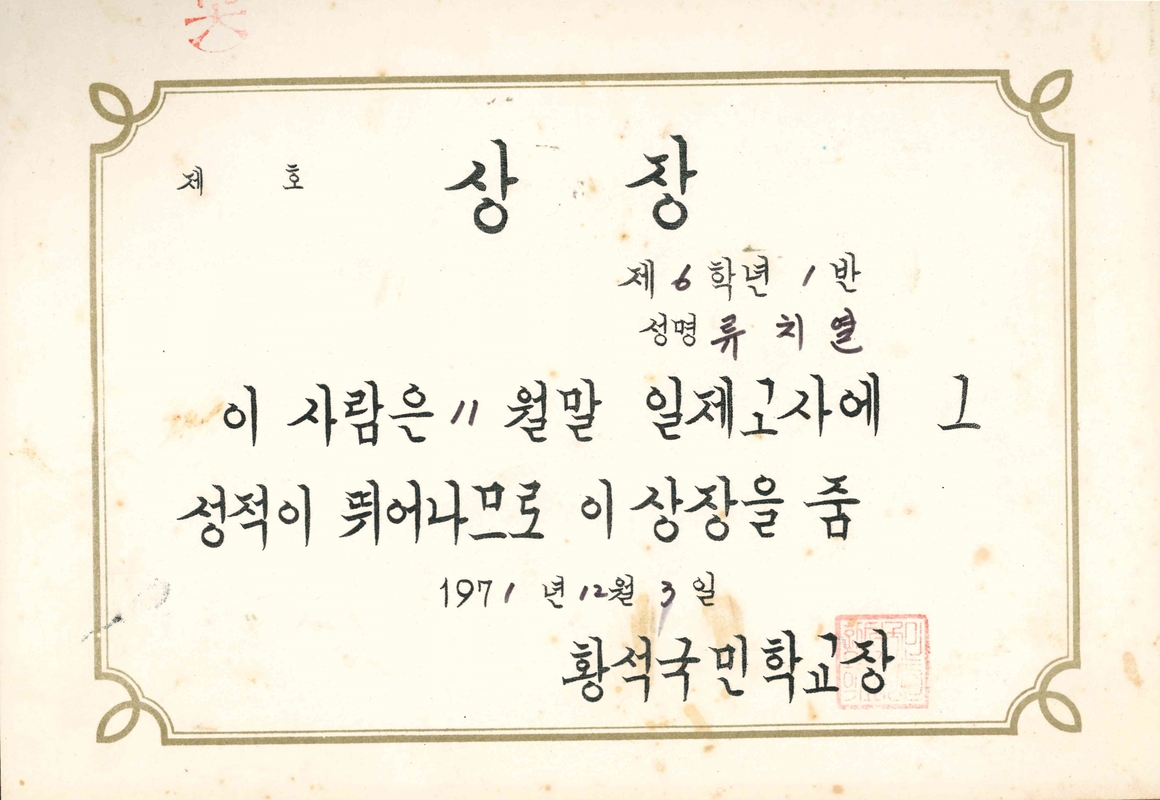 제 호 상 장
제 6 학년 1 반
성명 류 치 열
이 사람은 11 월말 일제고사에 그
성적이 뛰어나므로 이 상장을 줌
1971 년 12월 3 일
황석국민학교장